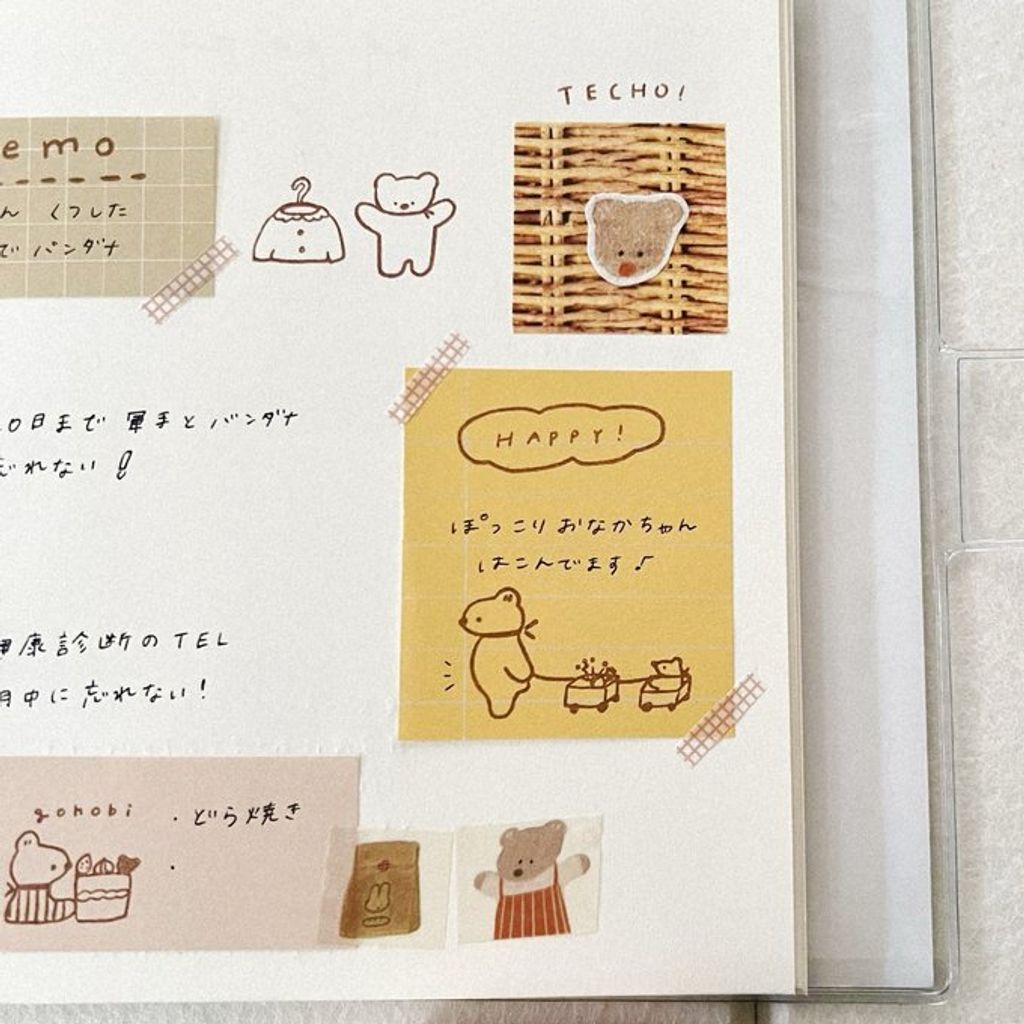 TECHO!
emo
ん くつした
で バンダナ
HAPPY!
10日まで 軍手と バンダナ
忘れない!
ぽっこり おなかちゃん
はこんでます♪
健康診断の TEL
月中に 忘れない!
gohobi
・どら焼き
・